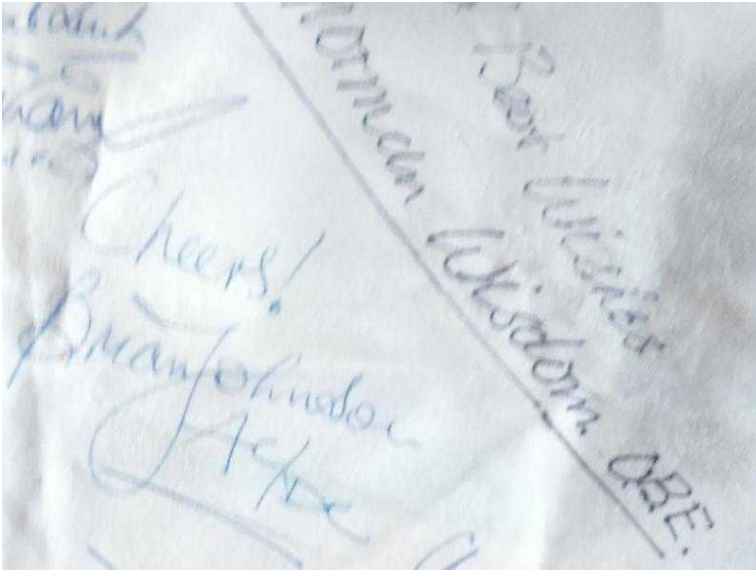 Cheers!
Brian Johnson
AC/DC
Best Wishes
Norman Wisdom. OBE.